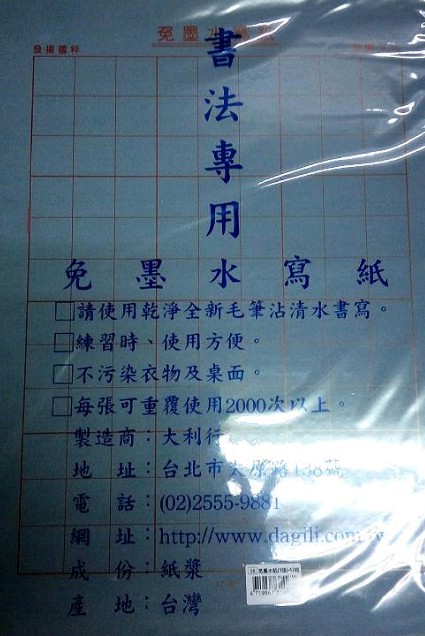 免墨水寫紙
發揚國粹
書法專用
免墨水寫紙
□請使用乾淨全新毛筆沾清水書寫。
□練習時、使用方便。
□不污染衣物及桌面。
□每張可重覆使用2000次以上。
製造商：大利行
地 址：台北市太原路138號
電 話：(02)2555-9881
網 址：http://www.dagili.com.tw
成 份：紙漿
產 地：台灣